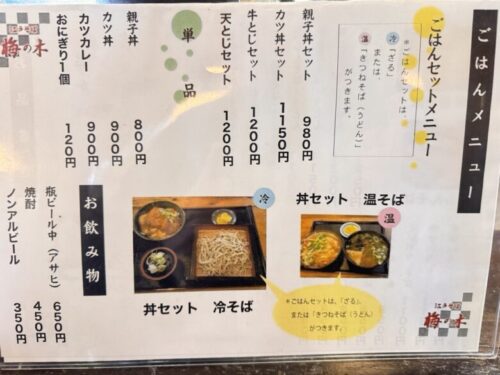 ごはんメニュー
ごはんセットメニュー
＊ごはんセットは、
冷「ざる」
または、
温「きつねそば（うどん）」
がつきます。
親子丼セット 980円
カツ丼セット 1150円
牛とじセット 1200円
天とじセット 1200円
単品
親子丼 800円
カツ丼 900円
カツカレー 900円
おにぎり1個 120円
梅の木
お飲み物
瓶ビール中（アサヒ） 650円
焼酎 450円
ノンアルビール 350円
冷
丼セット 冷そば
丼セット 温そば
温
＊ごはんセットは、「ざる」、
または「きつねそば（うどん）
がつきます。
梅の木